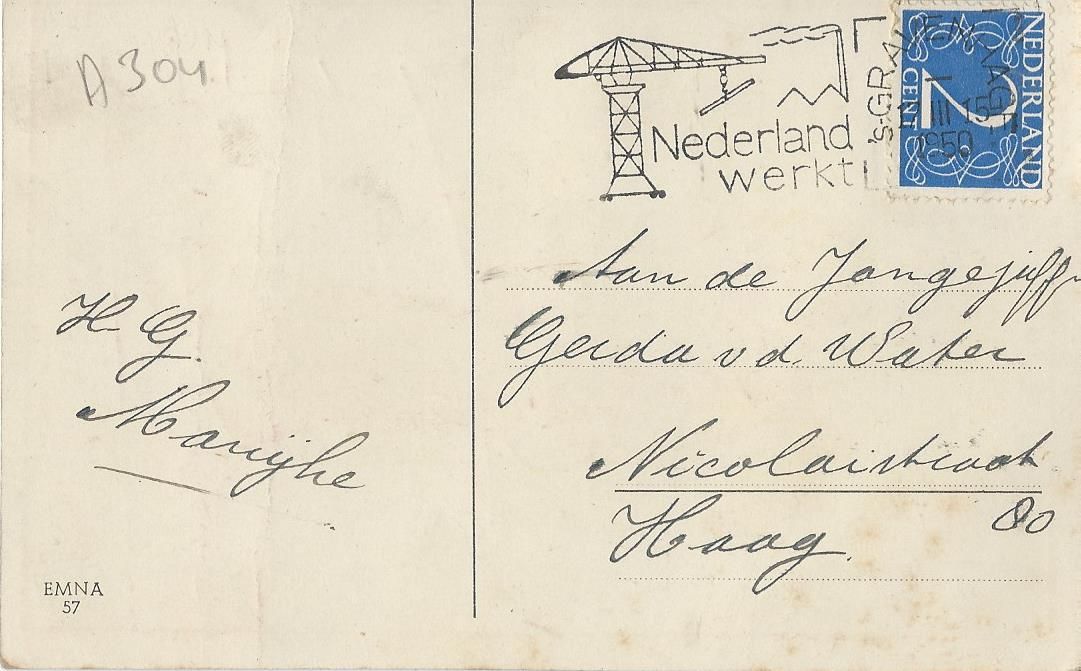 A 304
Nederland
werkt
's-GRAVENHAGE
III 15
1950
NEDERLAND
2
CENT
H G.
Marijke
EMNA
57
Aan de Jongejuffr
Gerda v d. Water
Nicolaistraat
80
Haag.